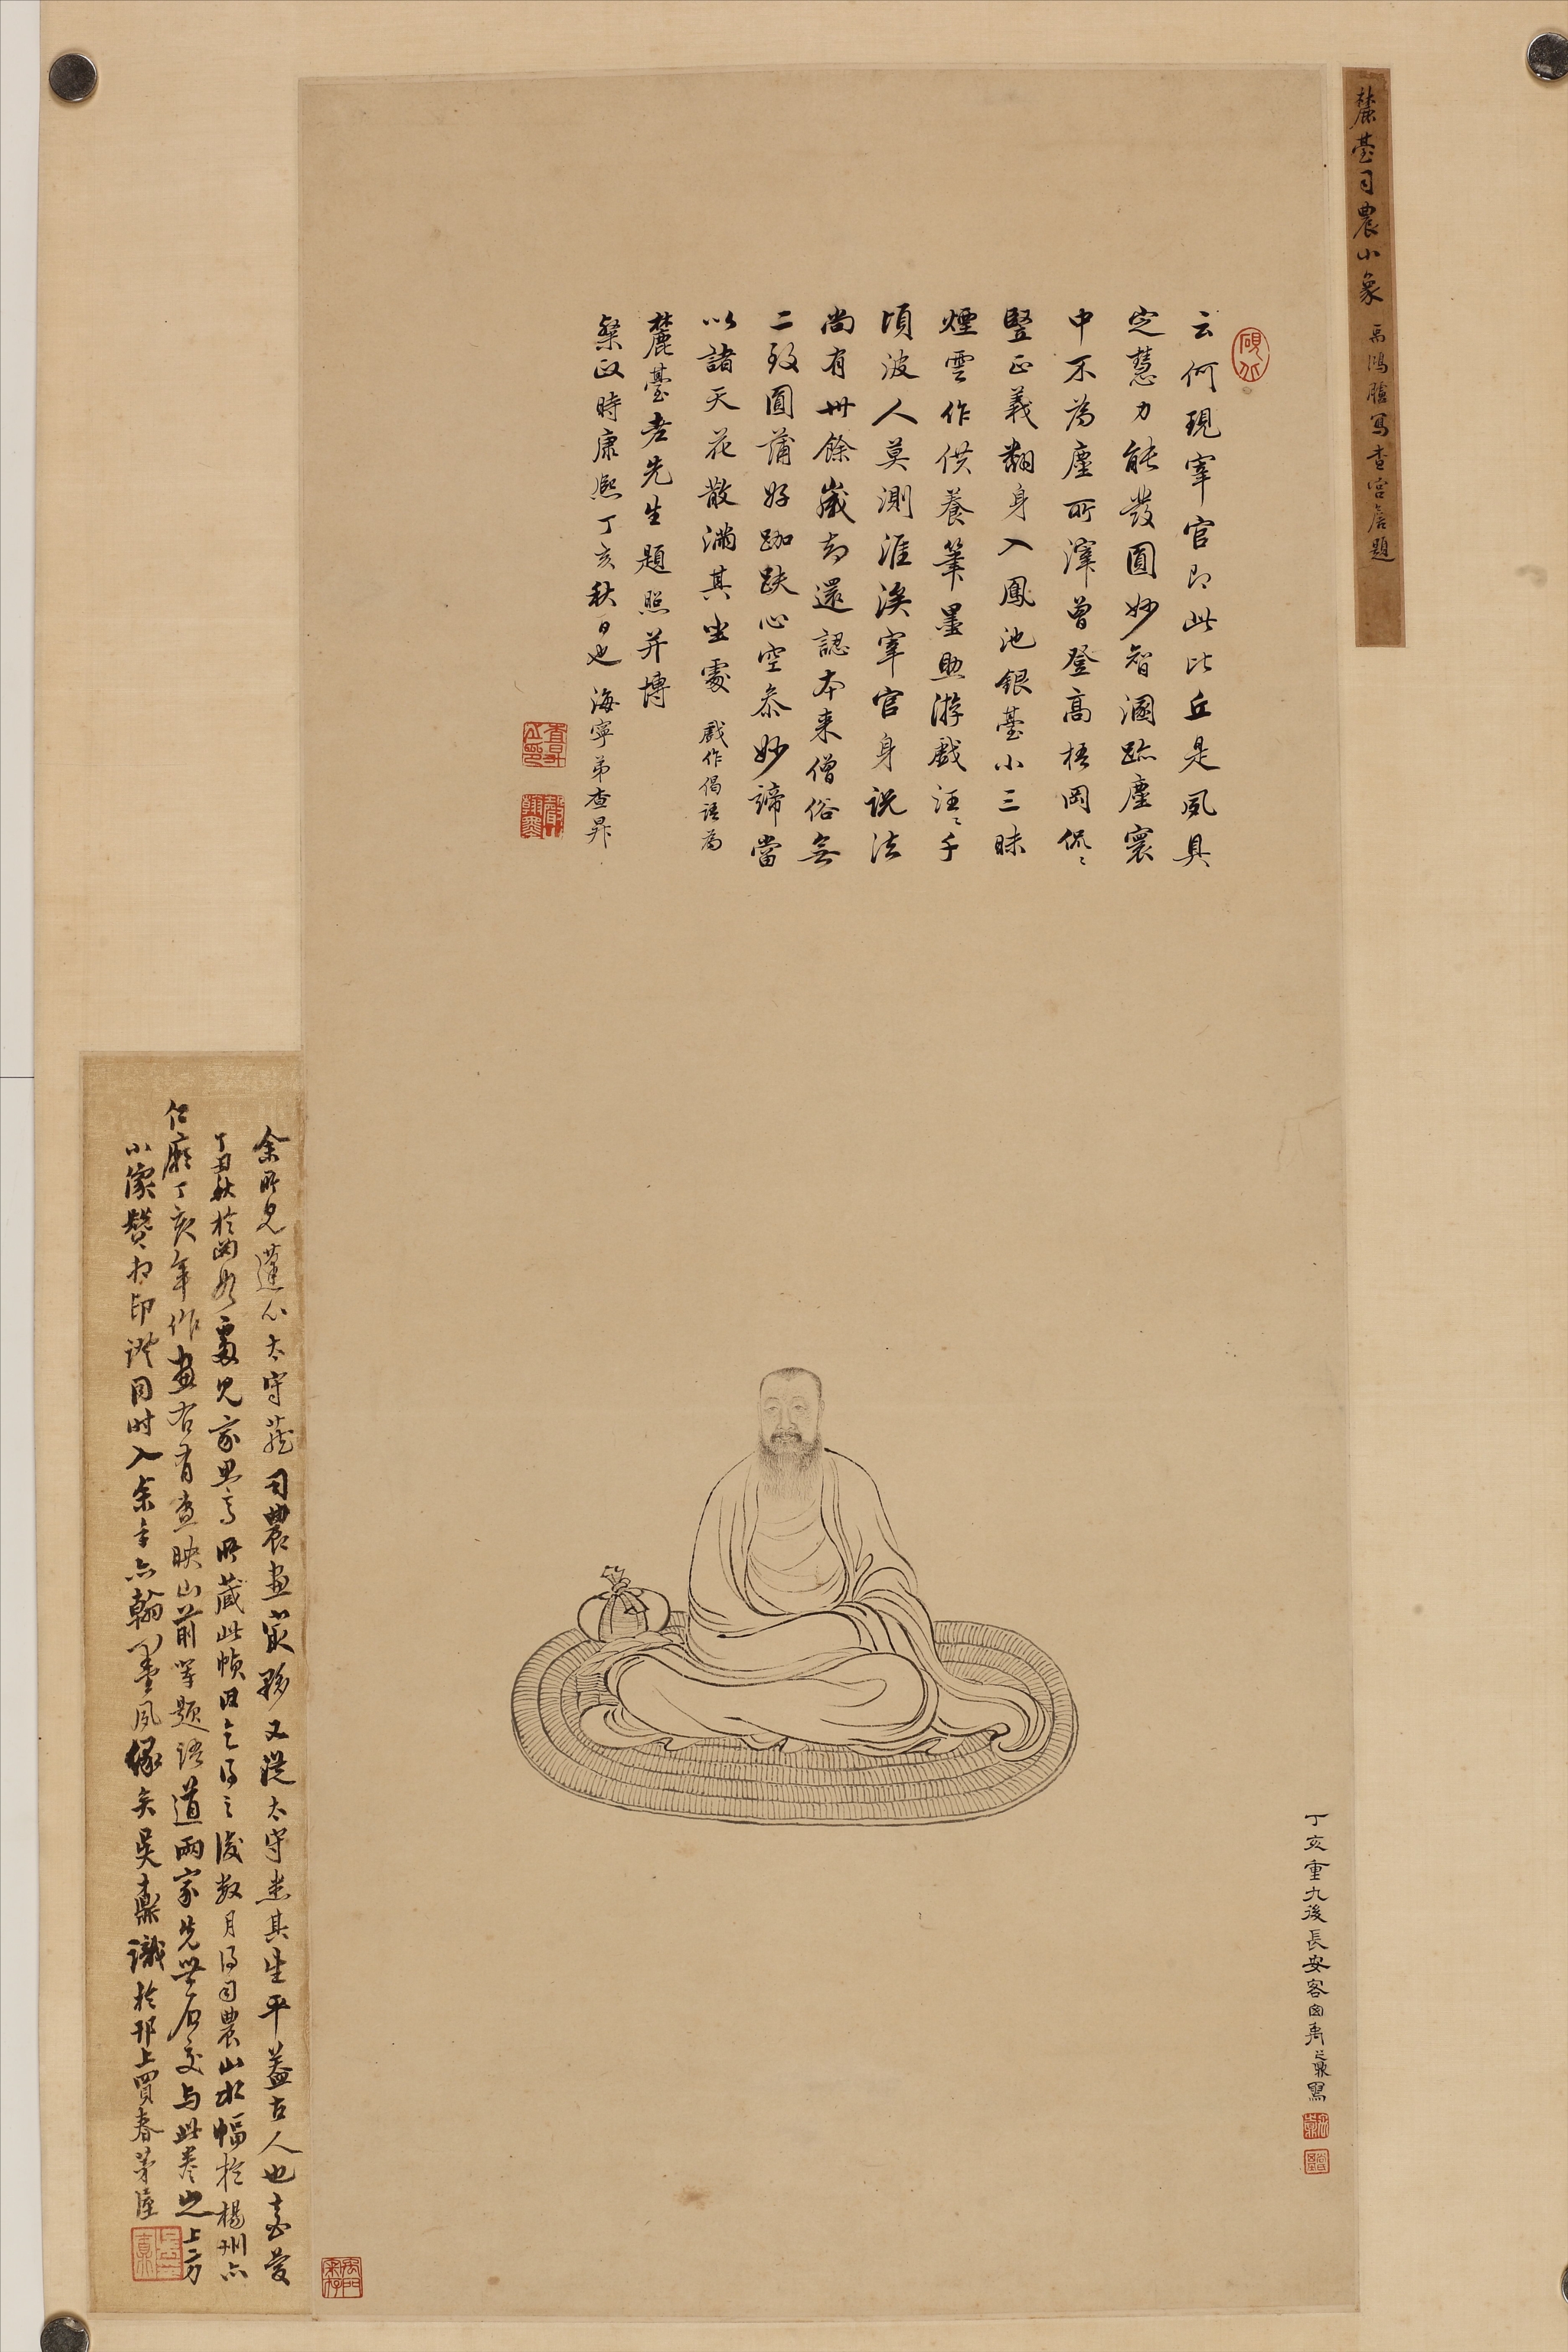 麓臺司農小象 禹鴻臚寫查宫詹題
云何現宰官即此比丘是夙具
定慧力能發圓妙智溷跡塵寰
中不為塵所滓曾登高梧岡侃〻
豎正義翻身入鳳池銀臺小三昧
煙雲作供養筆墨興游戲汪〻千
頃波人莫測涯涘宰官身說法
尚有卅餘歲却還認本来僧俗無
二致圓蒲好跏趺心空叅妙諦當
以諸天花散滿其坐處 戲作偈語為
麓臺老先生題照并博
粲政時康熙丁亥秋日也 海寧弟查昇
丁亥重九後長安客窗禹之鼎寫
余所見蓬心太守藏司農畫冣夥又從太守悉其生平蓋古人也
丁丑秋於兩 處見家 所藏此幀因乞得之後數月得司農山水幅於楊州亦
仁廟丁亥年作畫右有查映山前輩題語道兩家先世石交與此卷之上方
小像贊相印證同時入余手亦翰墨夙緣矣吳鼒識於邗上買春茅屋